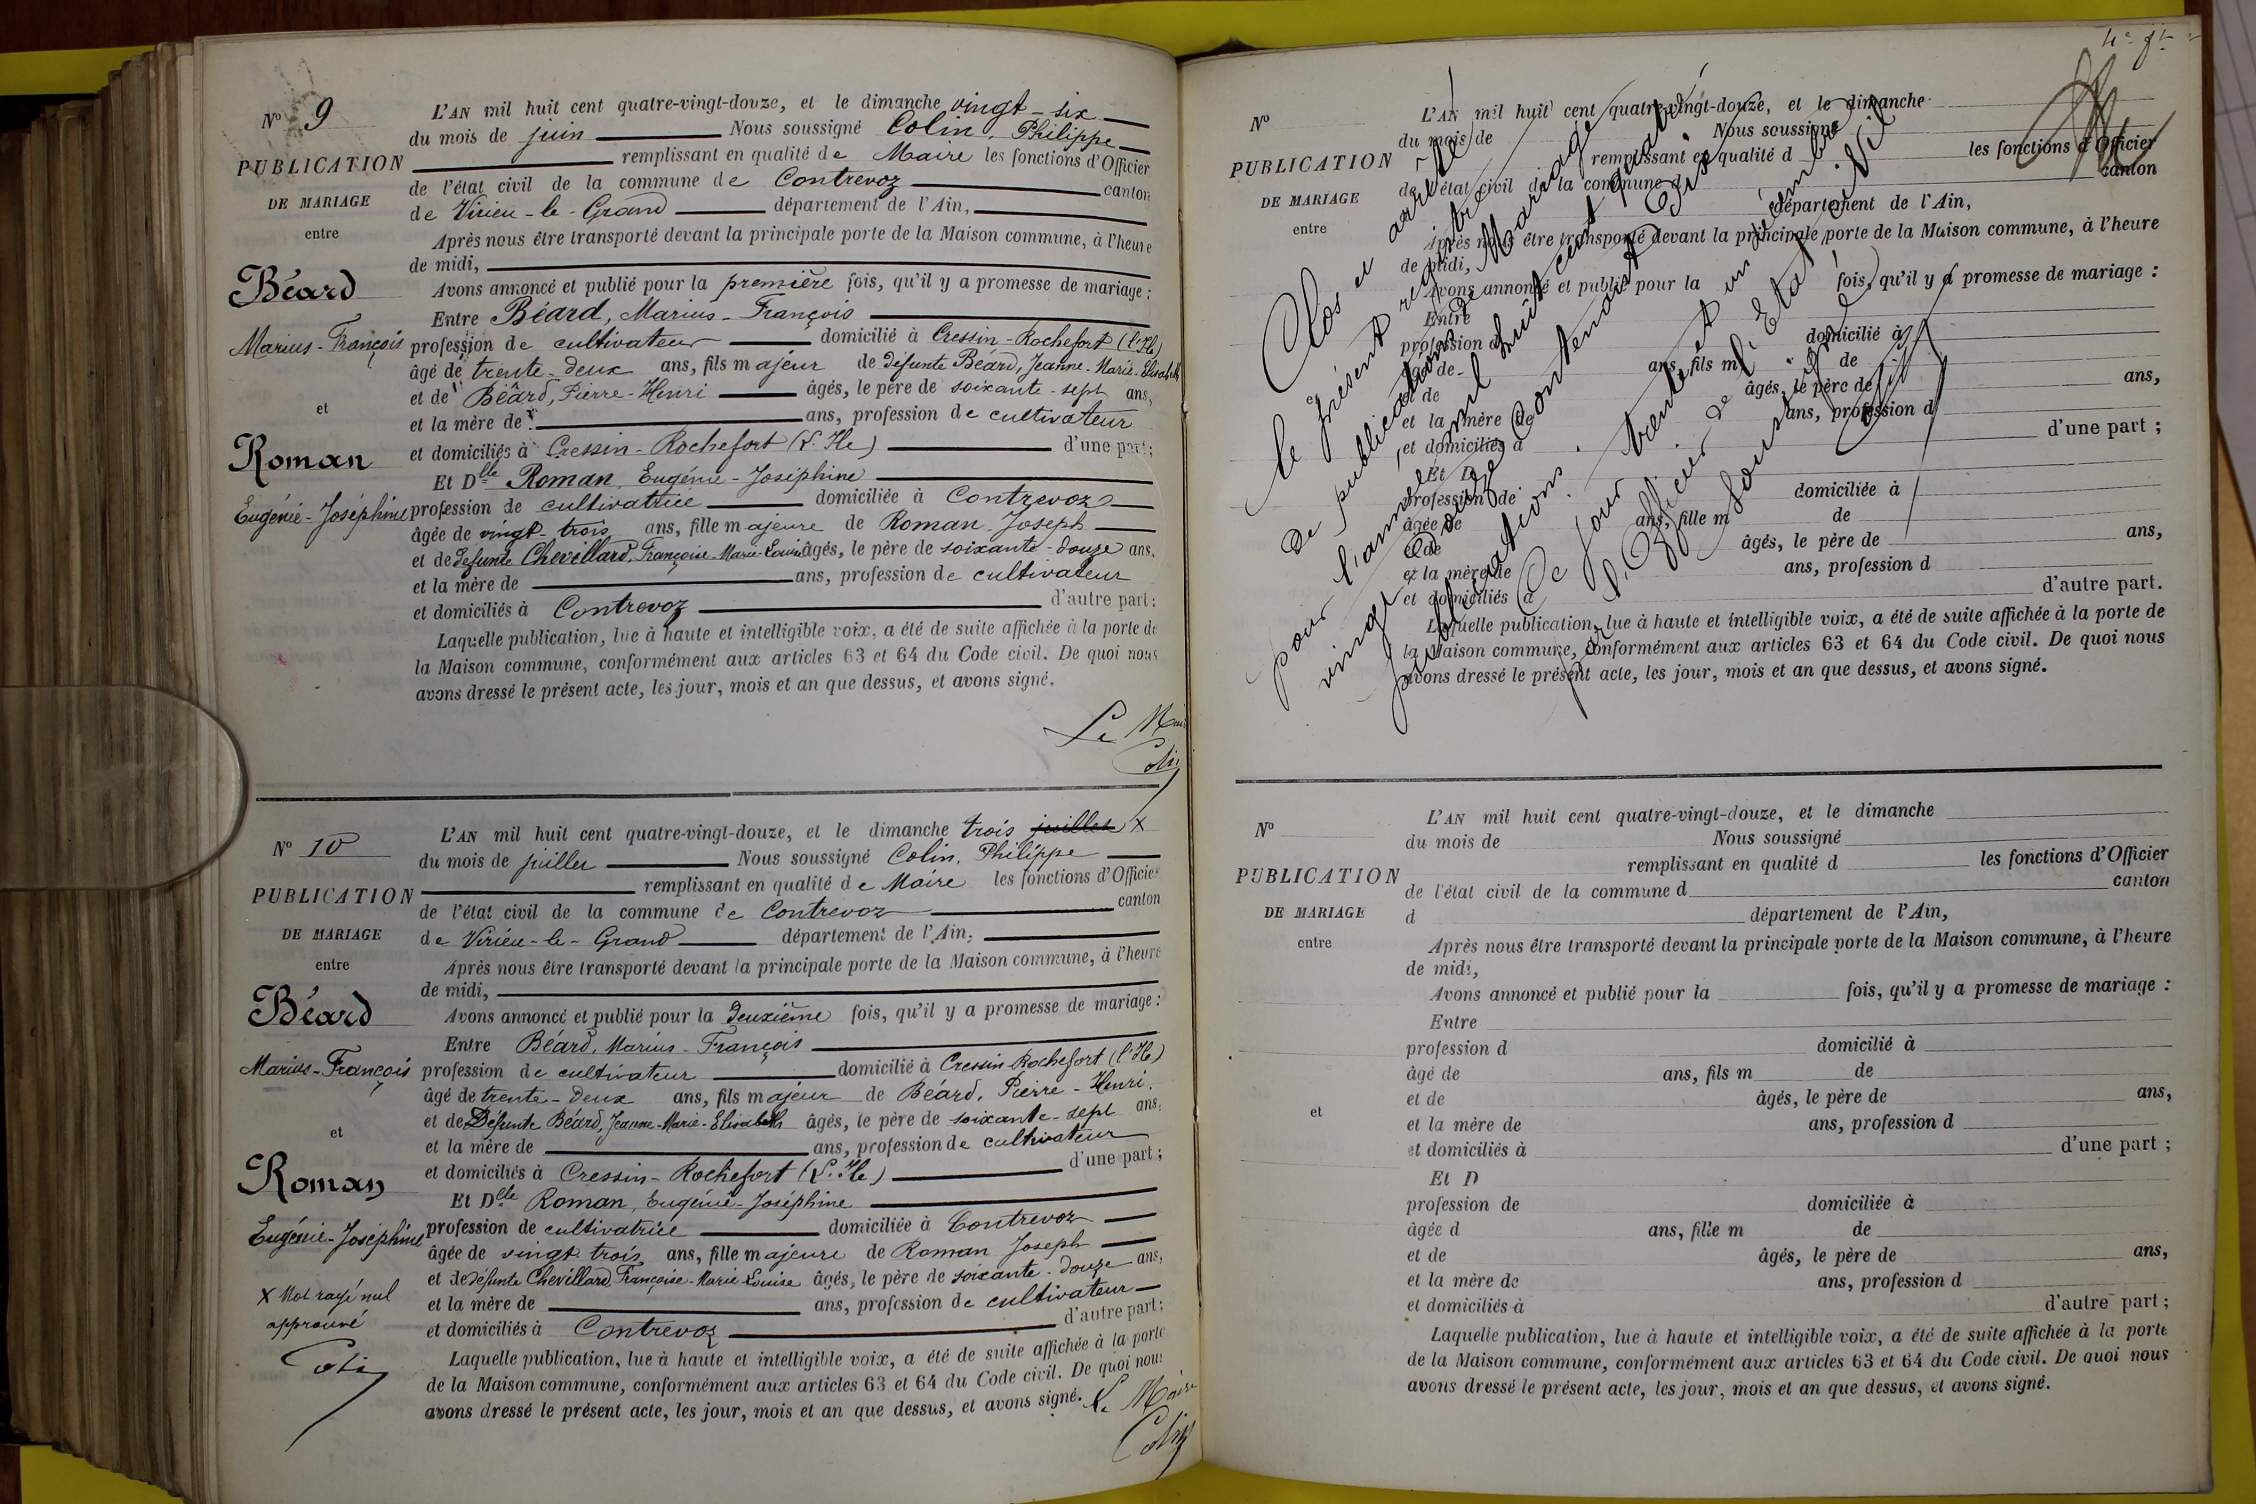 N° 9
PUBLICATION
DE MARIAGE
entre
Béard
Marius-François
et
Roman
Eugénie-Joséphine
L'AN mil huit cent quatre-vingt-douze, et le dimanche vingt-six
du mois de juin Nous soussigné Colin, Philippe
remplissant en qualité de Maire les fonctions d'Officier
de l'état civil de la commune de Contrevoz canton
de Virieu-le-Grand département de l'Ain,
Après nous être transporté devant la principale porte de la Maison commune, à l'heure
de midi,
Avons annoncé et publié pour la première fois, qu'il y a promesse de mariage :
Entre Béard, Marius-François
profession de cultivateur domicilié à Cressin-Rochefort (l'Ile)
âgé de trente-deux ans, fils majeur de défunte Béard, Jeanne-Marie-Elisabeth
et de Béard, Pierre-Henri âgés, le père de soixante-sept ans,
et la mère de ans, profession de cultivateur
et domiciliés à Cressin-Rochefort (L'Ile) d'une part;
Et Dlle Roman, Eugénie-Joséphine
profession de cultivatrice domiciliée à Contrevoz
âgée de vingt-trois ans, fille majeure de Roman Joseph
et de défunte Chevillard, Françoise-Marie-Louise âgés, le père de soixante-douze ans,
et la mère de ans, profession de cultivateur
et domiciliés à Contrevoz d'autre part:
Laquelle publication, lue à haute et intelligible voix, a été de suite affichée à la porte de
la Maison commune, conformément aux articles 63 et 64 du Code civil. De quoi nous
avons dressé le présent acte, les jour, mois et an que dessus, et avons signé.
Le Maire
Colin
N° 10
PUBLICATION
DE MARIAGE
entre
Béard
Marius-François
et
Roman
Eugénie-Joséphine
X Mot rayé nul
approuvé
Colin
L'AN mil huit cent quatre-vingt-douze, et le dimanche trois juillet X
du mois de juillet Nous soussigné Colin, Philippe
remplissant en qualité de Maire les fonctions d'Officier
de l'état civil de la commune de Contrevoz canton
de Virieu-le-Grand département de l'Ain,
Après nous être transporté devant la principale porte de la Maison commune, à l'heure
de midi,
Avons annoncé et publié pour la deuxième fois, qu'il y a promesse de mariage :
Entre Béard, Marius-François
profession de cultivateur domicilié à Cressin-Rochefort (l'Ile)
âgé de trente-deux ans, fils majeur de Béard, Pierre-Henri,
et de Défunte Béard, Jeanne-Marie-Elisabeth âgés, le père de soixante-sept ans,
et la mère de ans, profession de cultivateur
et domiciliés à Cressin-Rochefort (L'Ile) d'une part;
Et Dlle Roman, Eugénie-Joséphine
profession de cultivatrice domiciliée à Contrevoz
âgée de vingt-trois ans, fille majeure de Roman Joseph
et de défunte Chevillard, Françoise-Marie Louise âgés, le père de soixante-douze ans,
et la mère de ans, profession de cultivateur
et domiciliés à Contrevoz d'autre part;
Laquelle publication, lue à haute et intelligible voix, a été de suite affichée à la porte
de la Maison commune, conformément aux articles 63 et 64 du Code civil. De quoi nous
avons dressé le présent acte, les jour, mois et an que dessus, et avons signé.
Le Maire
Colin
N°
PUBLICATION
DE MARIAGE
entre
et
L'AN mil huit cent quatre-vingt-douze, et le dimanche
du mois de Nous soussigné
remplissant en qualité d les fonctions d'Officier
de l'état civil de la commune d canton
département de l'Ain,
Après nous être transporté devant la principale porte de la Maison commune, à l'heure
de midi,
Avons annoncé et publié pour la fois, qu'il y a promesse de mariage :
Entre
profession d domicilié à
âgé de ans, fils m de
et de âgés, le père de ans,
et la mère de ans, profession d
et domiciliés à d'une part ;
Et D
profession de domiciliée à
âgée de ans, fille m de
et de âgés, le père de ans,
et la mère de ans, profession d
et domiciliés à d'autre part.
Laquelle publication, lue à haute et intelligible voix, a été de suite affichée à la porte de
la Maison commune, conformément aux articles 63 et 64 du Code civil. De quoi nous
avons dressé le présent acte, les jour, mois et an que dessus, et avons signé.
Clos et arrêté
le présent registre
de publications de Mariage
pour l'année mil huit cent quatre
vingt douze contenant Dix
publications. Ce jour trente et un décembre
par l'Officier de l'Etat Civil
soussigné
Colin
N°
PUBLICATION
DE MARIAGE
entre
et
L'AN mil huit cent quatre-vingt-douze, et le dimanche
du mois de Nous soussigné
remplissant en qualité d les fonctions d'Officier
de l'état civil de la commune d canton
d département de l'Ain,
Après nous être transporté devant la principale porte de la Maison commune, à l'heure
de midi,
Avons annoncé et publié pour la fois, qu'il y a promesse de mariage :
Entre
profession d domicilié à
âgé de ans, fils m de
et de âgés, le père de ans,
et la mère de ans, profession d
et domiciliés à d'une part ;
Et D
profession de domiciliée à
âgée d ans, fille m de
et de âgés, le père de ans,
et la mère de ans, profession d
et domiciliés à d'autre part ;
Laquelle publication, lue à haute et intelligible voix, a été de suite affichée à la porte
de la Maison commune, conformément aux articles 63 et 64 du Code civil. De quoi nous
avons dressé le présent acte, les jour, mois et an que dessus, et avons signé.